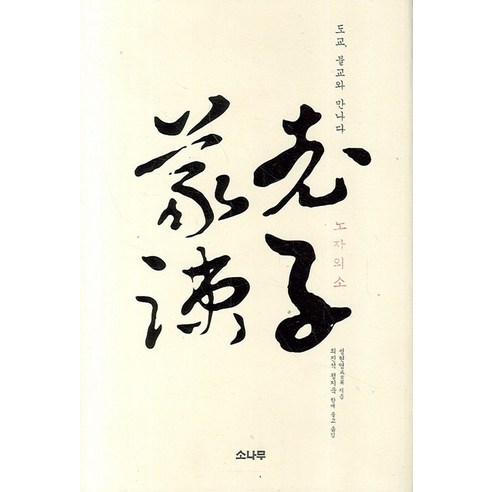 도교, 불교와 만나다
老子
義疎
노자의소
성현영 지음
최진석 정지욱 함께 풀고 옮김
소나무